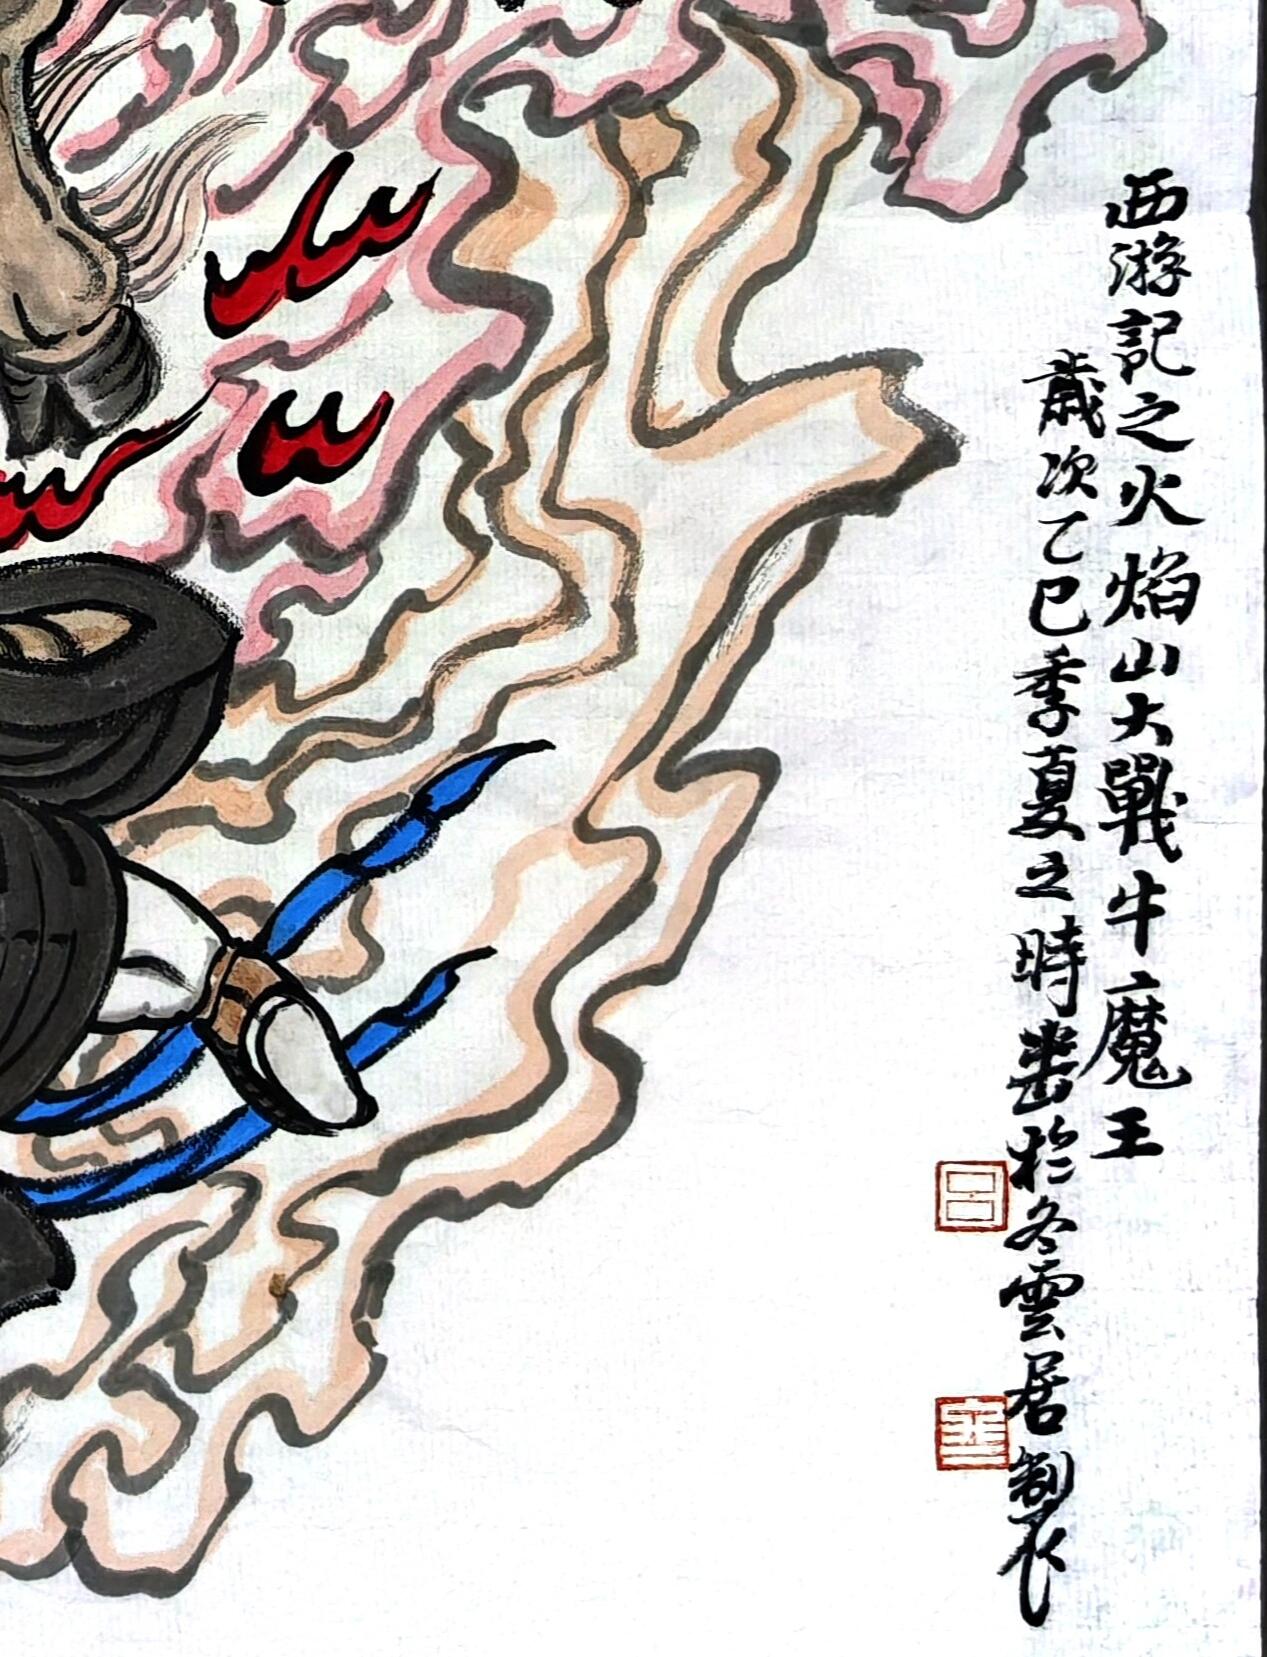 西游記之火焰山大戰牛魔王
歲次乙巳季夏之時歲於冬雲居製